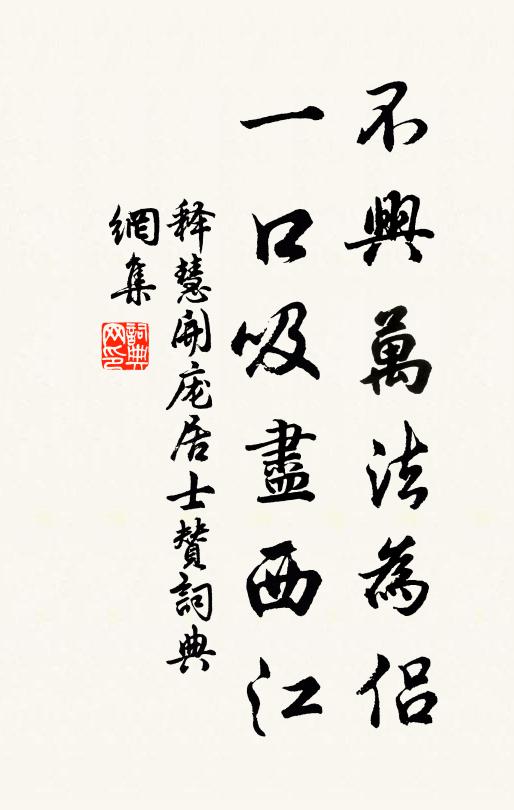 不與萬法為侶
一口吸盡西江
释慧開庞居士贊詞典
網集
詞典
网印